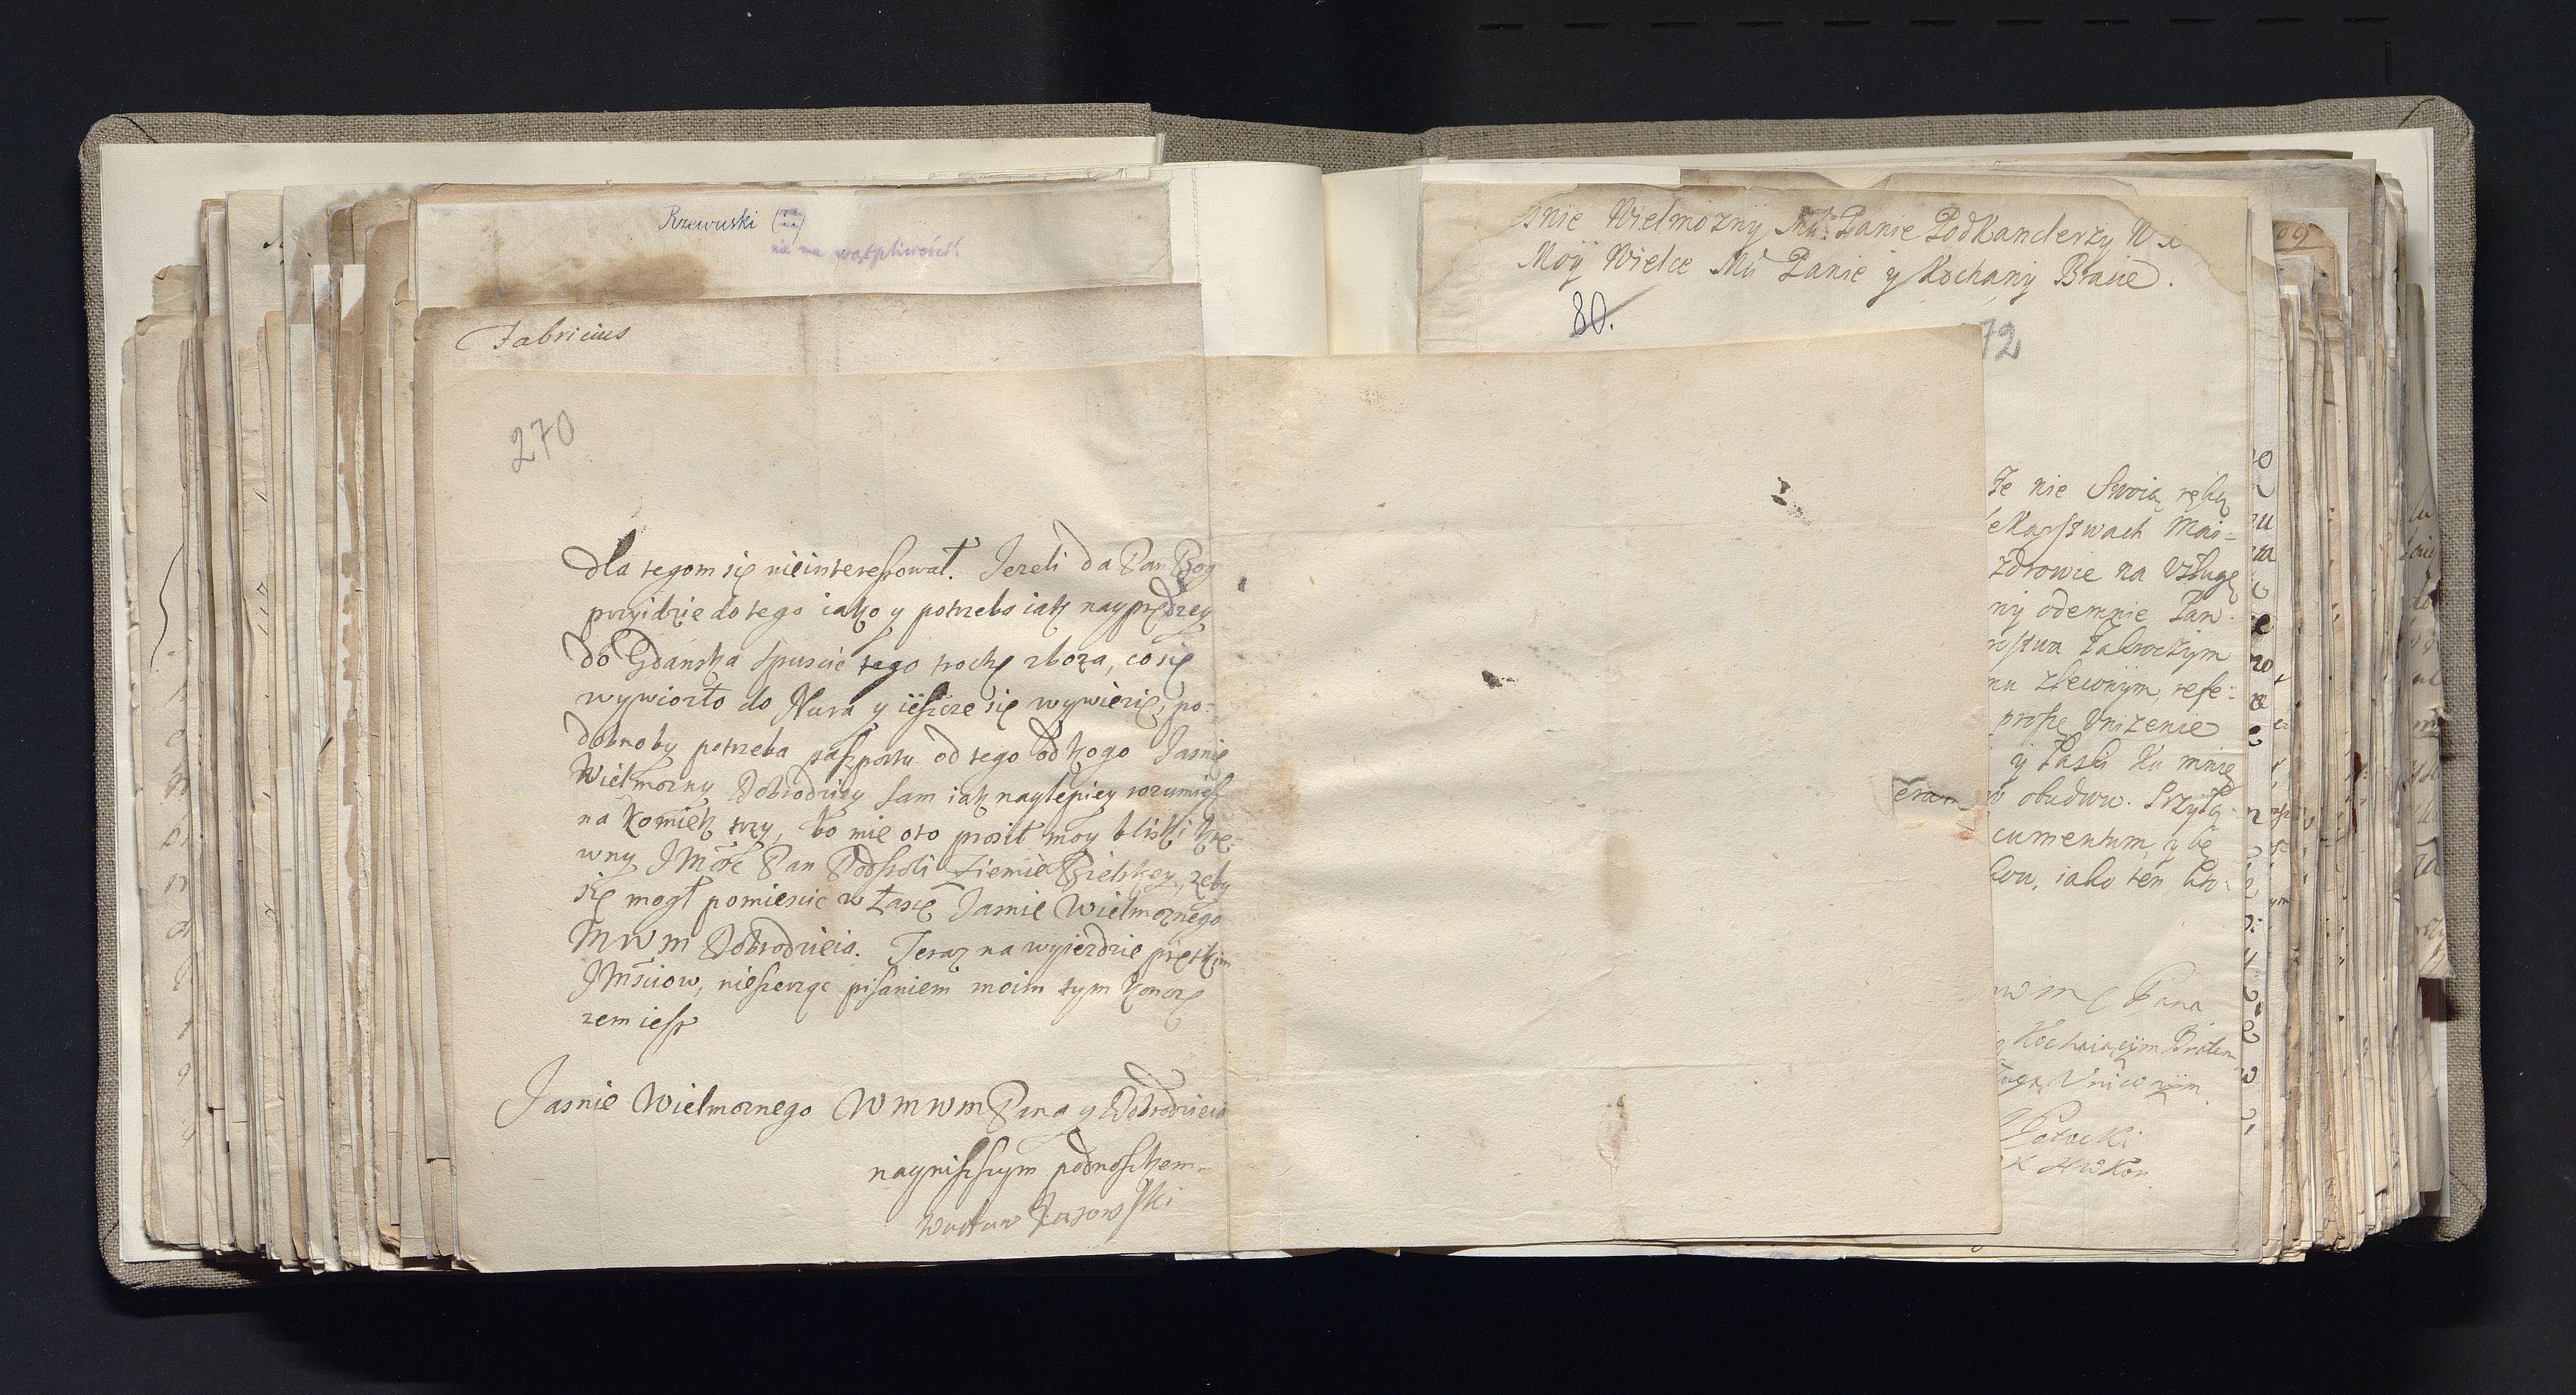 Rzewuski (??)
nie ma wątpliwości!
Fabricius
270
dla tegom się nieinteressował. Jezeli da Pan Bog
przyidzie do tego iako y potrzeba iak nayprędzey
do Gdańska spuscic tego trochę zboza, co się
wywiozło do Nura y ieszcze się wywiezie, po-
dobno by potrzeba paszportu od tego od kogo Jasnie
Wielmozny Dobrodziey sam iak naylepiey rozumiesz
na Komiek trzy, bo mie oto prosił moy bliski kre-
wny JMśc Pan Podstoli Ziemie Bielskey, zeby
się mogł pomiescic w łasce Jasnie Wielmoznego
MWM Dobrodzieia. Teraz na wyiezdzie prętkim
JMściow, nieszerząc pisaniem moim tym konczę
zem iest
Jasnie Wielmoznego WMWM Pana y Dobrodzieia
naynizszym podnoszkem
Wacław
snie Wielmozny Panie Podkanclerzy W
Moÿ Wielce Mći Panie y Kochany Bracie.
80.
72
Ze nie Swoią ręką
ekarstwach Maio-
zdrowie na Vsługę
ny odemnie Pan
rostwa Zakroczym
nu zlewnym, refe-
proszę Vnizenie
y Łaski Ku mnie
obudwu. Przyłą-
eram
cumentum, y be
kou, iako ten, kto-
w m Pana
Kochaiącym Bratem
ługą Vniżonym
Potocki